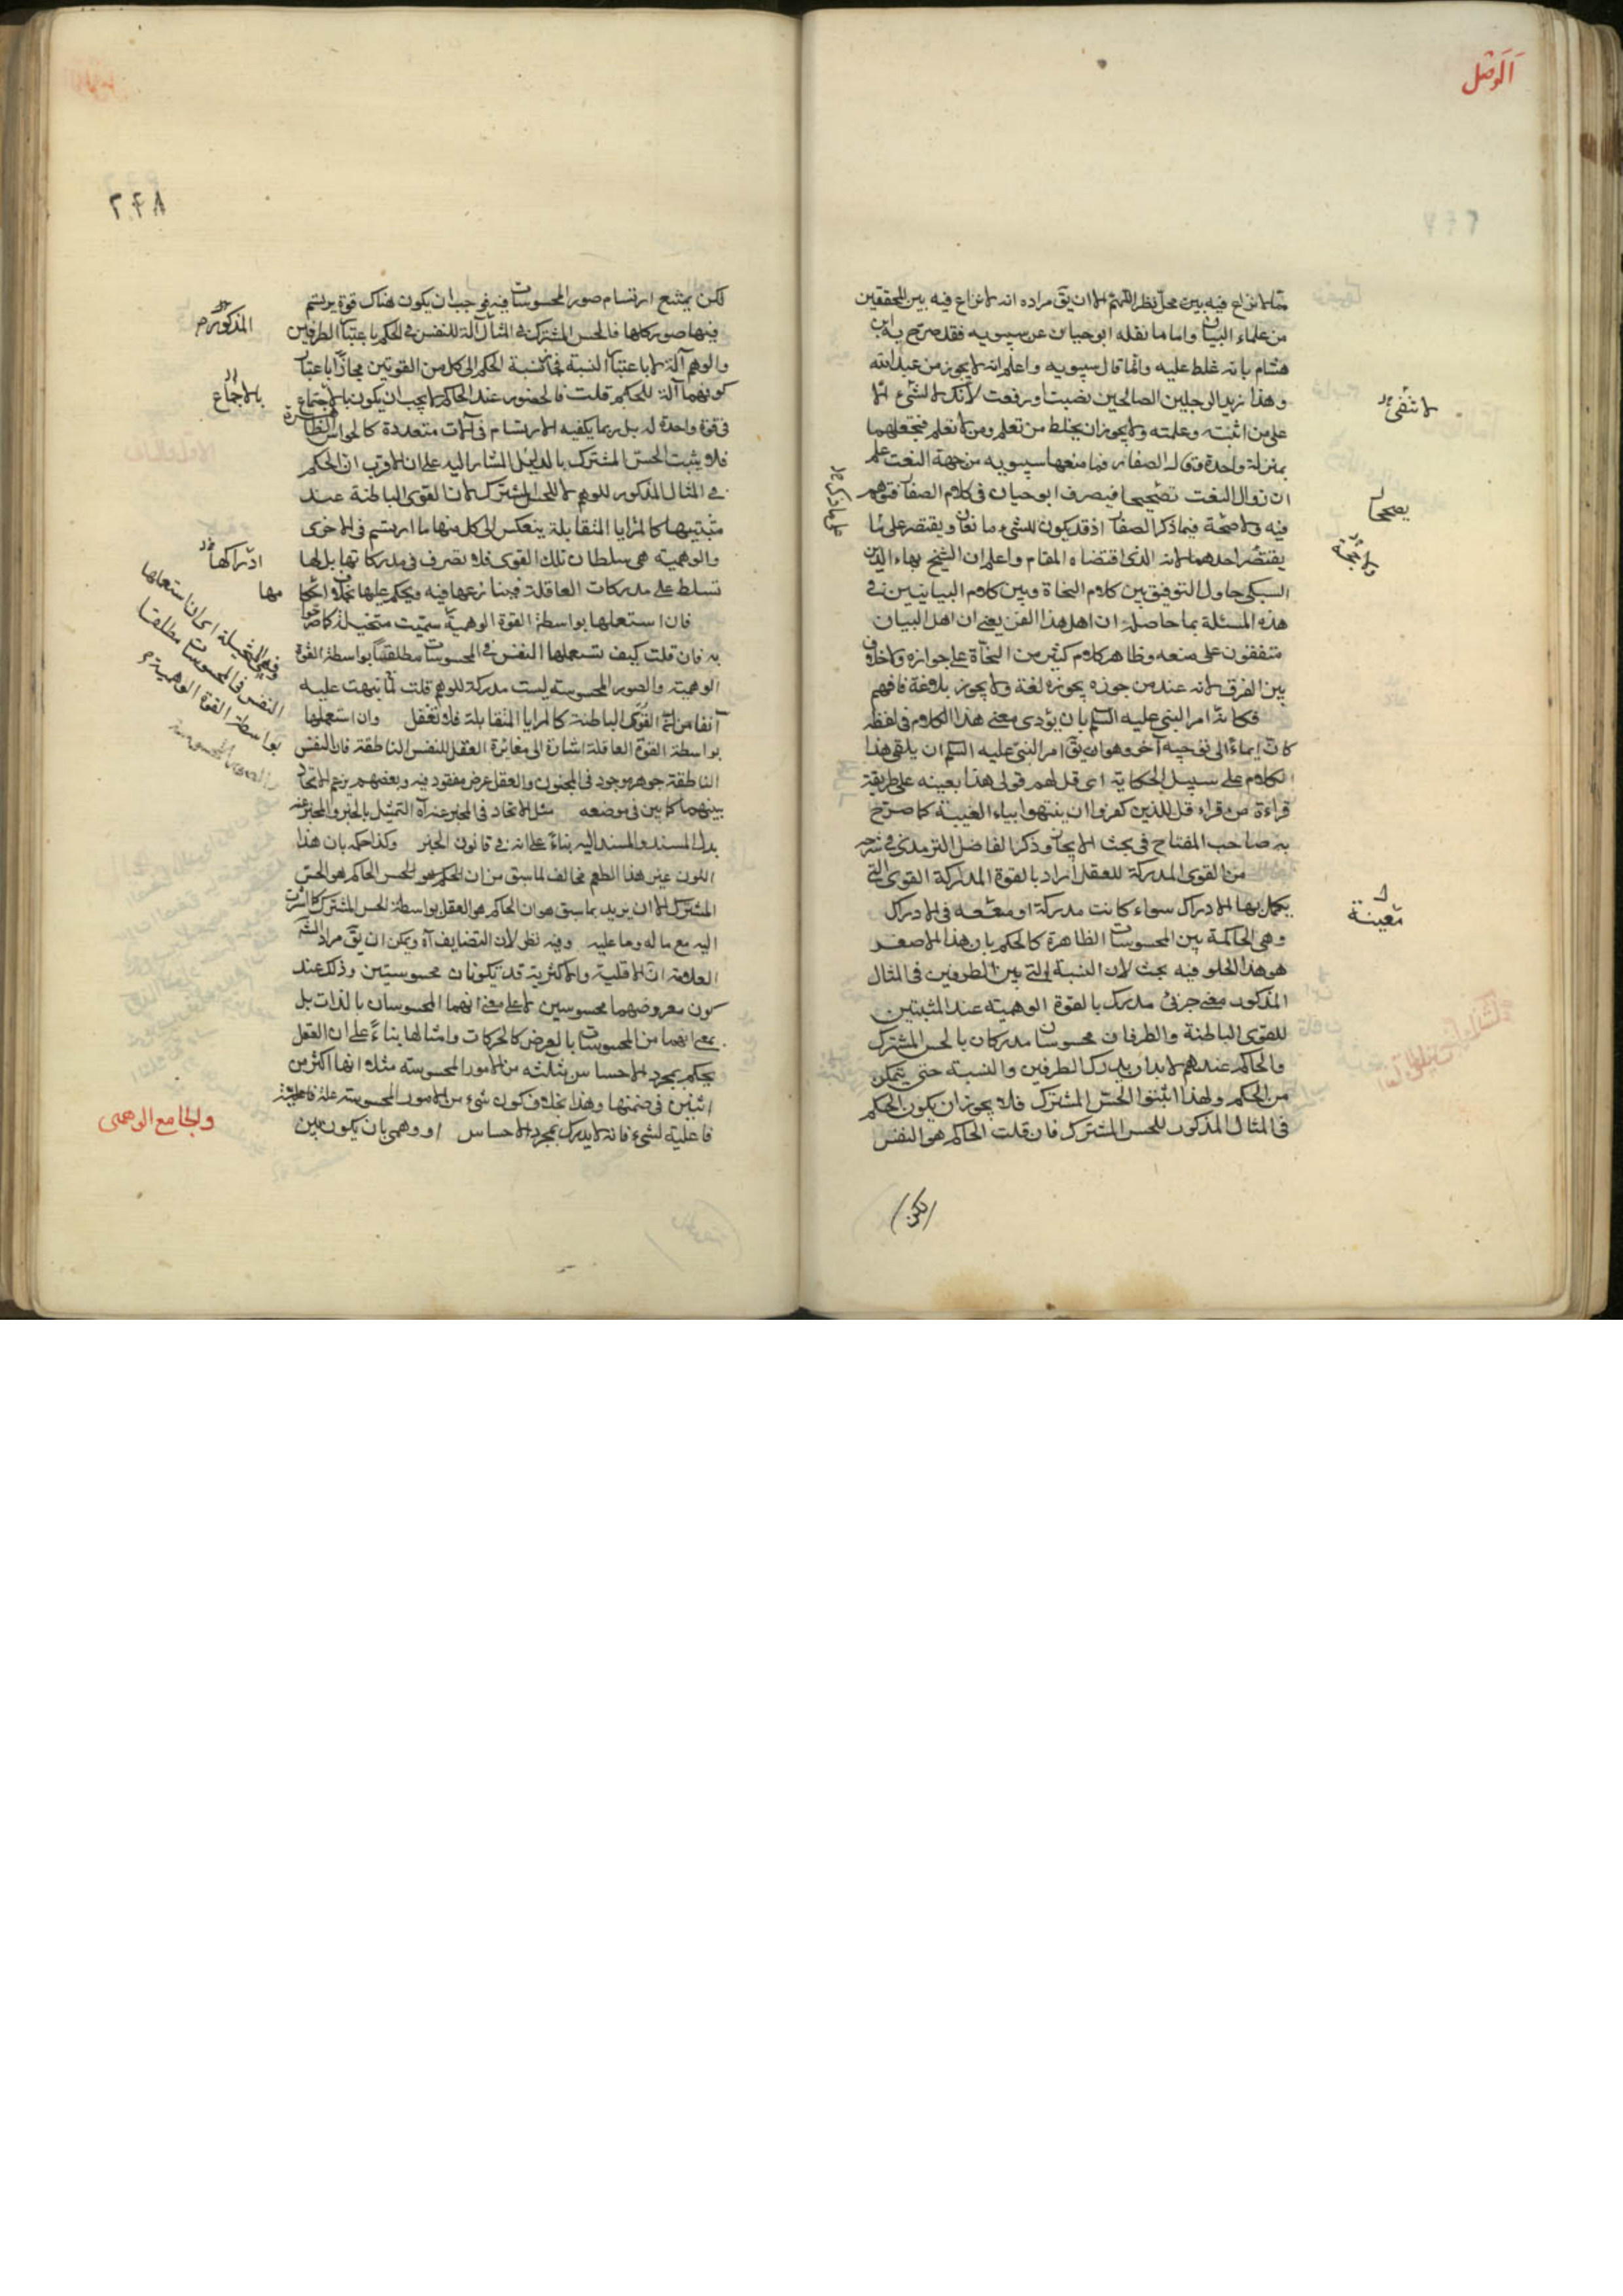 الوصل
مما لا نزاع فيه بين محل نظر اللهم الا ان يق مراده انه لا نزاع فيه بين المحققين
من علماء البيان واما ما نقله ابو حيان عن سيبويه فقد صرح به ابن
هشام بانه غلط عليه وانما قال سيبويه واعلم انه لا يجوز من عبد الله
وهذا زيد الرجلين الصالحين نصبت او رفعت لانك لا تثنى الا
على من اثبته وعلمته ولا يجوز ان يخلط من تعلم ومن لا تعلم فتجعلهما
بمنزلة واحدة وقال الصفار فما منعها سيبويه من جهة النعت علم
ان زوال النعت تصحيحها فيصرف ابو حيان في كلام الصفار فتوهم
فيه ولا صحة فيما ذكر الصفار اذ قد يكون للشيء مانعان ويقتصر على ما
يقتضي احدهما لانه الذي اقتضاه المقام واعلم ان الشيخ بهاء الدين
السبكي حاول التوفيق بين كلام النحاة وبين كلام البيانيين في
هذه المسئلة بما حاصله ان اهل هذا الفن يعني ان اهل البيان
متفقون على منعه وظاهر كلام كثير من النحاة على جوازه ولا خلاف
بين الفرق لانه عند من جوزه يجوزه لغة ولا يجوز بلاغة فافهم
فكانه امر النبي عليه السلم بان يؤدي معنى هذا الكلام في لفظه
كانه ايماء الى توجيه آخر وهو ان يق امر النبي عليه السلم ان يلقي هذا
الكلام على سبيل الحكاية اى قل لهم قولى هذا بعينه على طريقة
قراءة من قراء قل للذين كفروا ان ينتهوا بياء الغيبة كما صرح
به صاحب المفتاح في بحث الايجاز وذكر الفاضل الترمذى في شرحه
من القوى المدركة للعقل اراد بالقوة المدركة القوى التي
يكمل بها الادراك سواء كانت مدركة او معينة في الادراك
وهي الحاكمة بين المحسوسات الظاهرة كالحكم بان هذا الاصفر
هو هذا الحلو فيه بحث لان النسبة التي بين الطرفين في المثال
المذكور معنى جزئي مدرك بالقوة الوهمية عند المثبتين
للقوى الباطنة والطرفان محسوسان مدركان بالحس المشترك
والحاكم عندهم لابد ان يدرك الطرفين والنسبة حتى يتمكن
من الحكم ولهذا اثبتوا الحس المشترك فلا يجوز ان يكون الحكم
في المثال المذكور للحس المشترك فان قلت الحاكم هو النفس
(لكن)
معينة
٢٤٨
لكن يمتنع ارتسام صور المحسوسات فيه فوجب ان يكون هناك قوة يرتسم
فيها صور كلها فالحس المشترك في المثال آلة للنفس في الحكم باعتبار الطرفين
والوهم آلة لا باعتبار النسبة فنسبة الحكم الى كل من القوتين مجازا باعتبار
كونهما آلة للحكم قلت فالحضور عند الحاكم لا يجب ان يكون بالاجتماع
في قوة واحدة له بل ربما يكفيه الارتسام في آلات متعددة كالحواس الظاهرة
فلا يثبت الحس المشترك بالدليل المشار اليه على ان الاقرب ان الحكم
في المثال المذكور للوهم لا للحس المشترك لان القوى الباطنة عند
مثبتيها كالمرايا المتقابلة ينعكس الى كل منها ما ارتسم في الاخرى
والوهمية هي سلطان تلك القوى فلا تصرف في مدركاتها بل لها
تسلط على مدركات العاقلة فينازعها فيه ويحكم عليها بخلاف احكامها
فان استعملها بواسطة القوة الوهمية سميت متخيلة كما صرحوا
به فان قلت كيف تستعملها النفس في المحسوسات مطلقا بواسطة القوة
الوهمية والصور المحسوسة ليست مدركة للوهم قلت لما نبهت عليه
آنفا من ان القوى الباطنة كالمرايا المتقابلة فلا تغفل وان استعملها
بواسطة القوة العاقلة اشارة الى مغائرة العقل للنفس الناطقة فان النفس
الناطقة جوهر موجود في المجنون والعقل عرض مفقود فيه وبعضهم يزعم الاتحاد
بينهما كما بين في موضعه مثل الاتحاد في المخبر عنه آه التمثيل بالخبر والمخبر عنه
بدل المسند والمسند اليه بناء على انه في قانون الخبر وكذا حكمه بان هذا
اللون غير هذا الطعم مخالف لما سبق من ان الحكم هو للحس الحاكم هو الحس
المشترك الا ان يريد بما سبق هو ان الحاكم هو العقل بواسطة الحس المشترك كما اشرت
اليه مع ماله وما عليه وفيه نظر لان التضايف آه ويمكن ان يق مراد الشه
العلامة ان الاقلية والاكثرية قد تكونان محسوستين وذلك عند
كون معروضهما محسوسين لا على معنى انهما المحسوسان بالذات بل
بمعنى انهما من المحسوسات بالعرض كالحركات وامثالها بناء على ان العقل
يحكم بمجرد الاحساس بثلثة من الامور المحسوسة مثلا انها اكثر من
اثنين في ضمنها وهذا بخلاف كون شيء من الامور المحسوسة علة فاعلية
فاعلية لشيء فانه لا يدرك بمجرد الاحساس او وهمي بان يكون بين
المذكور
بالاجماع
ادراكها
مها
النفس في المحسوسات مطلقا
بواسطة القوة الوهمية
والجامع الوهمى